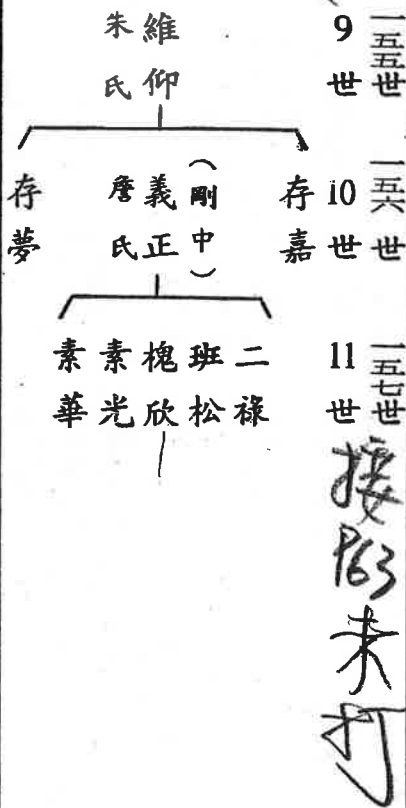 一五五世
9世
維仰
朱氏
一五六世
10世
存嘉
義正（剛中）
詹氏
存夢
一五七世
11世
二祿
班松
槐欣
素光
素華
接P63未打